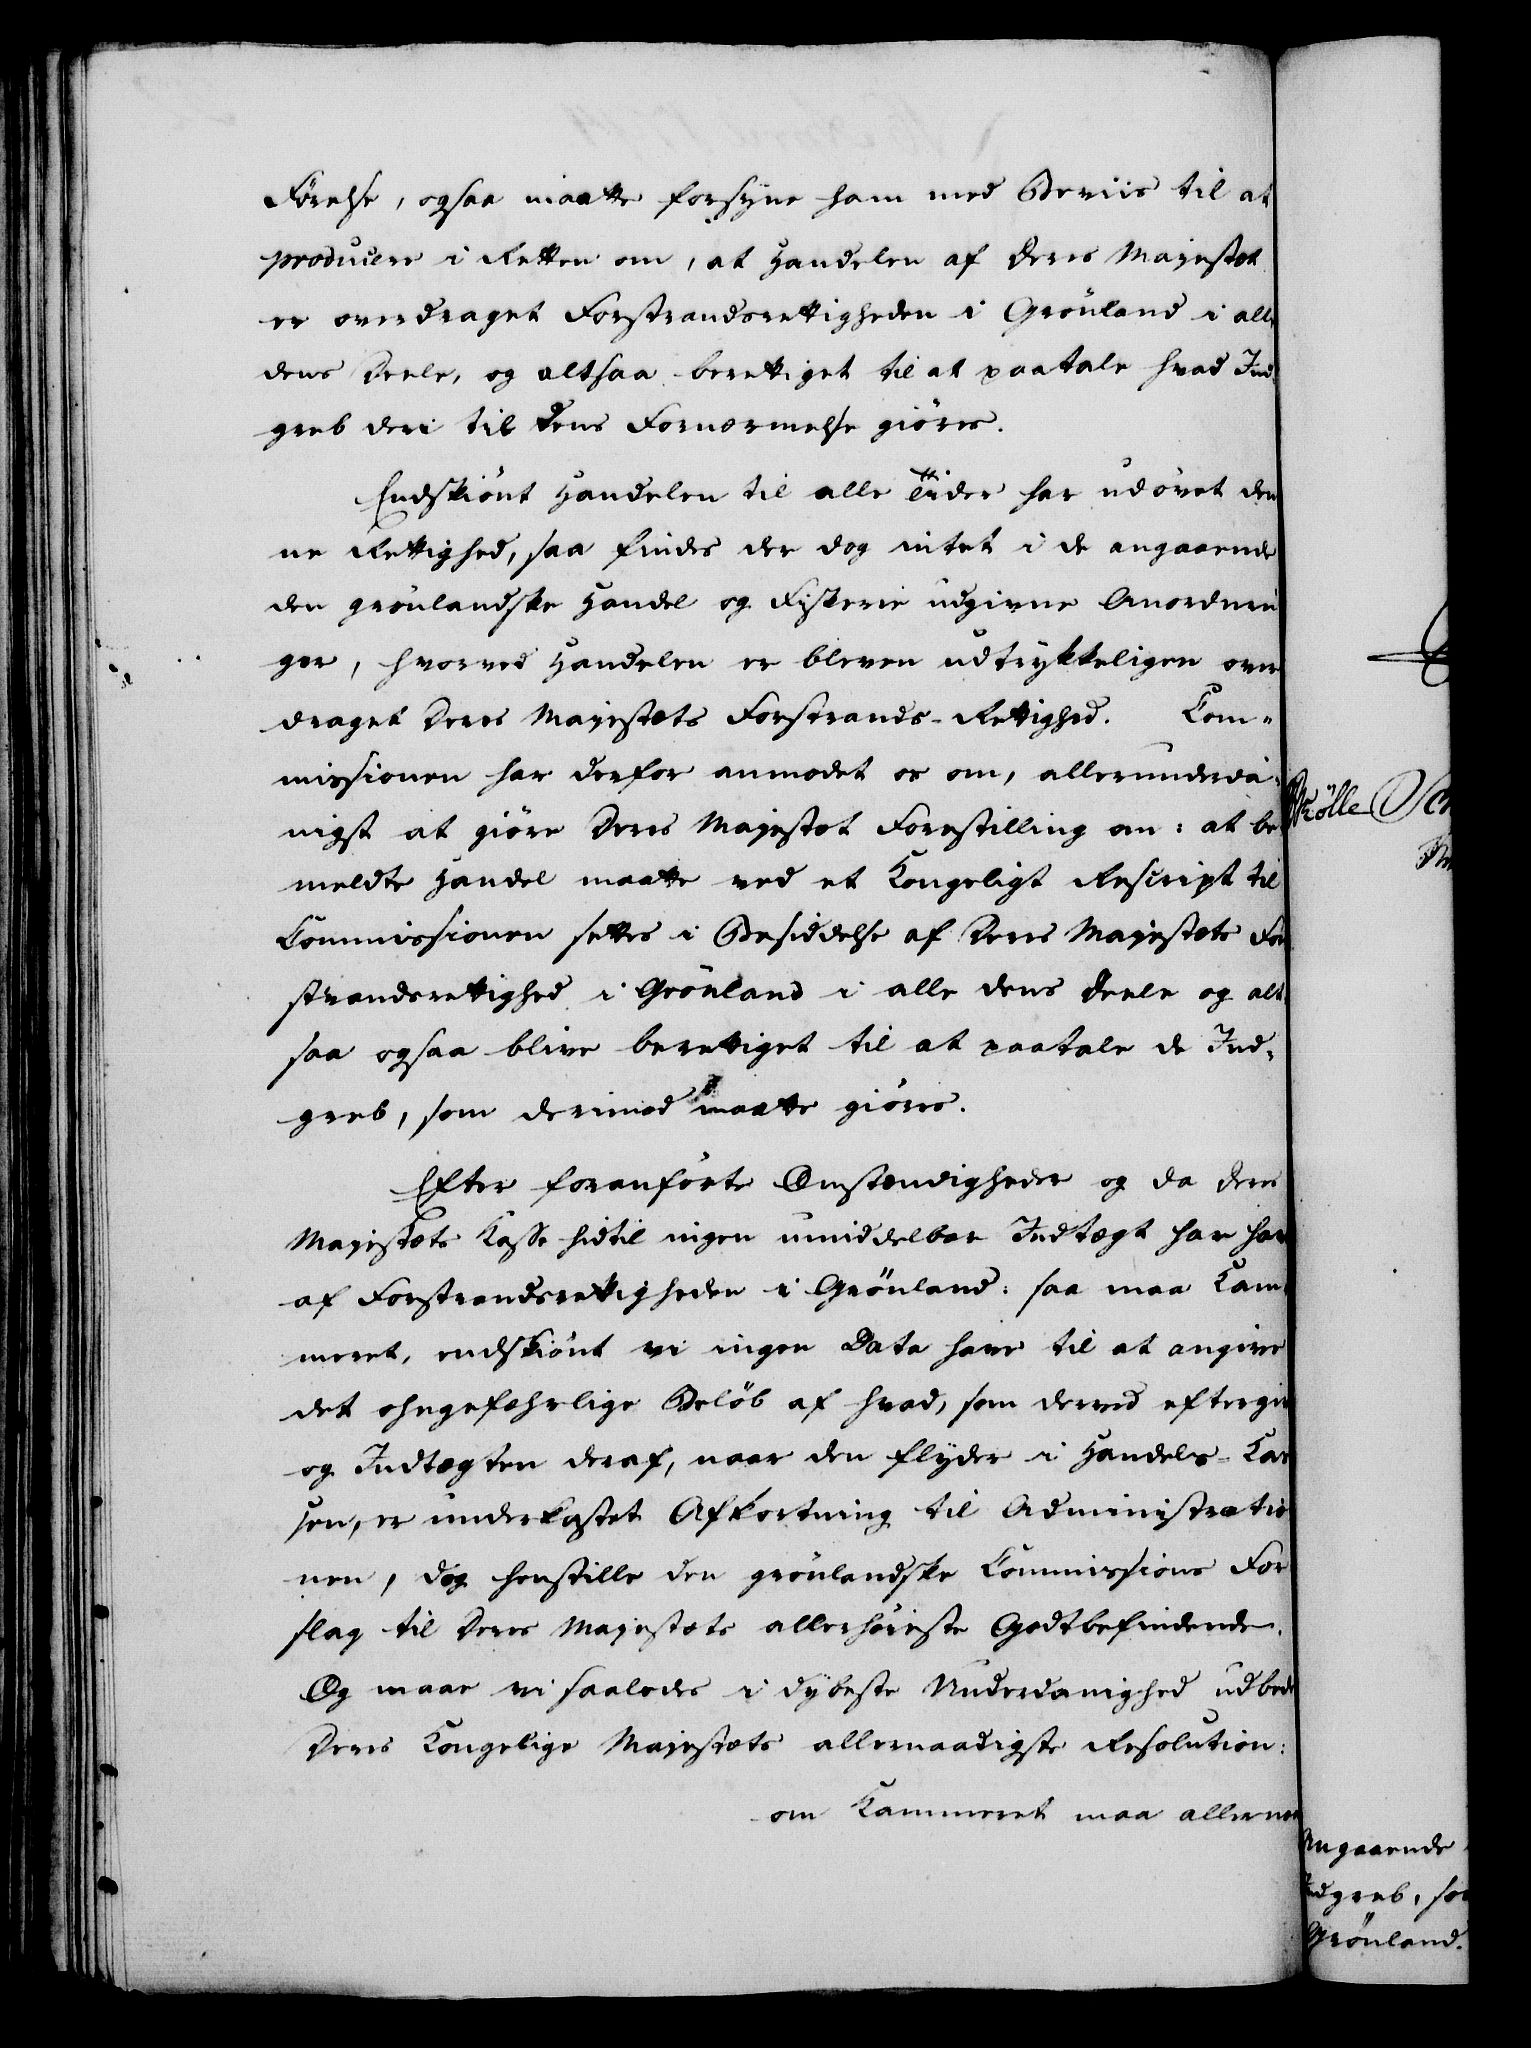 Førelse, ogsaa maatte forsyne ham med Beviis til at
producere i Retten om, at Handelen af Deres Majestæt
er overdraget Forstrandsrettigheden i Grönland i alle
dens Deele, og altsaa berettiget til at paatale hvad Ind
greb deri til dens Fornærmelse giöres.
Endskiönt Handelen til alle Tider har udövet den
ne Rettighed, saa findes der dog intet i de angaaende
den grönlandske Handel og Fiskerie udgivne Anordnin
ger, hvorved Handelen er bleven udtrykkeligen over
draget Deres Majestæts Forstrands-Rettighed. Com-
missionen har derfor anmodet os om, allerunderda-
nigst at giöre Deres Majestæt Forestilling om: at be
meldte Handel maatte ved et Kongeligt Rescript til
Commissionen settes i Besiddelse af Deres Majestæts For
strandsrettighed i Grönland i alle dens Deele og alt
saa ogsaa blive berettiget til at paatale de Ind-
greb, som derimod maatte giöres.
Efter foranförte Omstændigheder og da Deres
Majestæts Kasse hidtil ingen umiddelbar Indtægt har hav
af Forstrandsrettigheden i Grönland: saa maa Kam
meret, endskiönt vi ingen Data have til at angive
det ohngefæhrlige Belöb af hvad, som derved eftergiv
og Indtægten deraf, naar den flyder i Handels-Kas
sen, er underkastet Afkortning til Administratio
nen, dog henstille den grönlandske Commissions For
slag til Deres Majestæts allerhöieste Godtbefindende.
Og maae vi saaledes i dybeste Underdanighed udbede
Deres Kongelige Majestæts allernaadigste Resolution:
om Kammeret maa allernaa
Angaaende
Indgreb, so
Grönland.